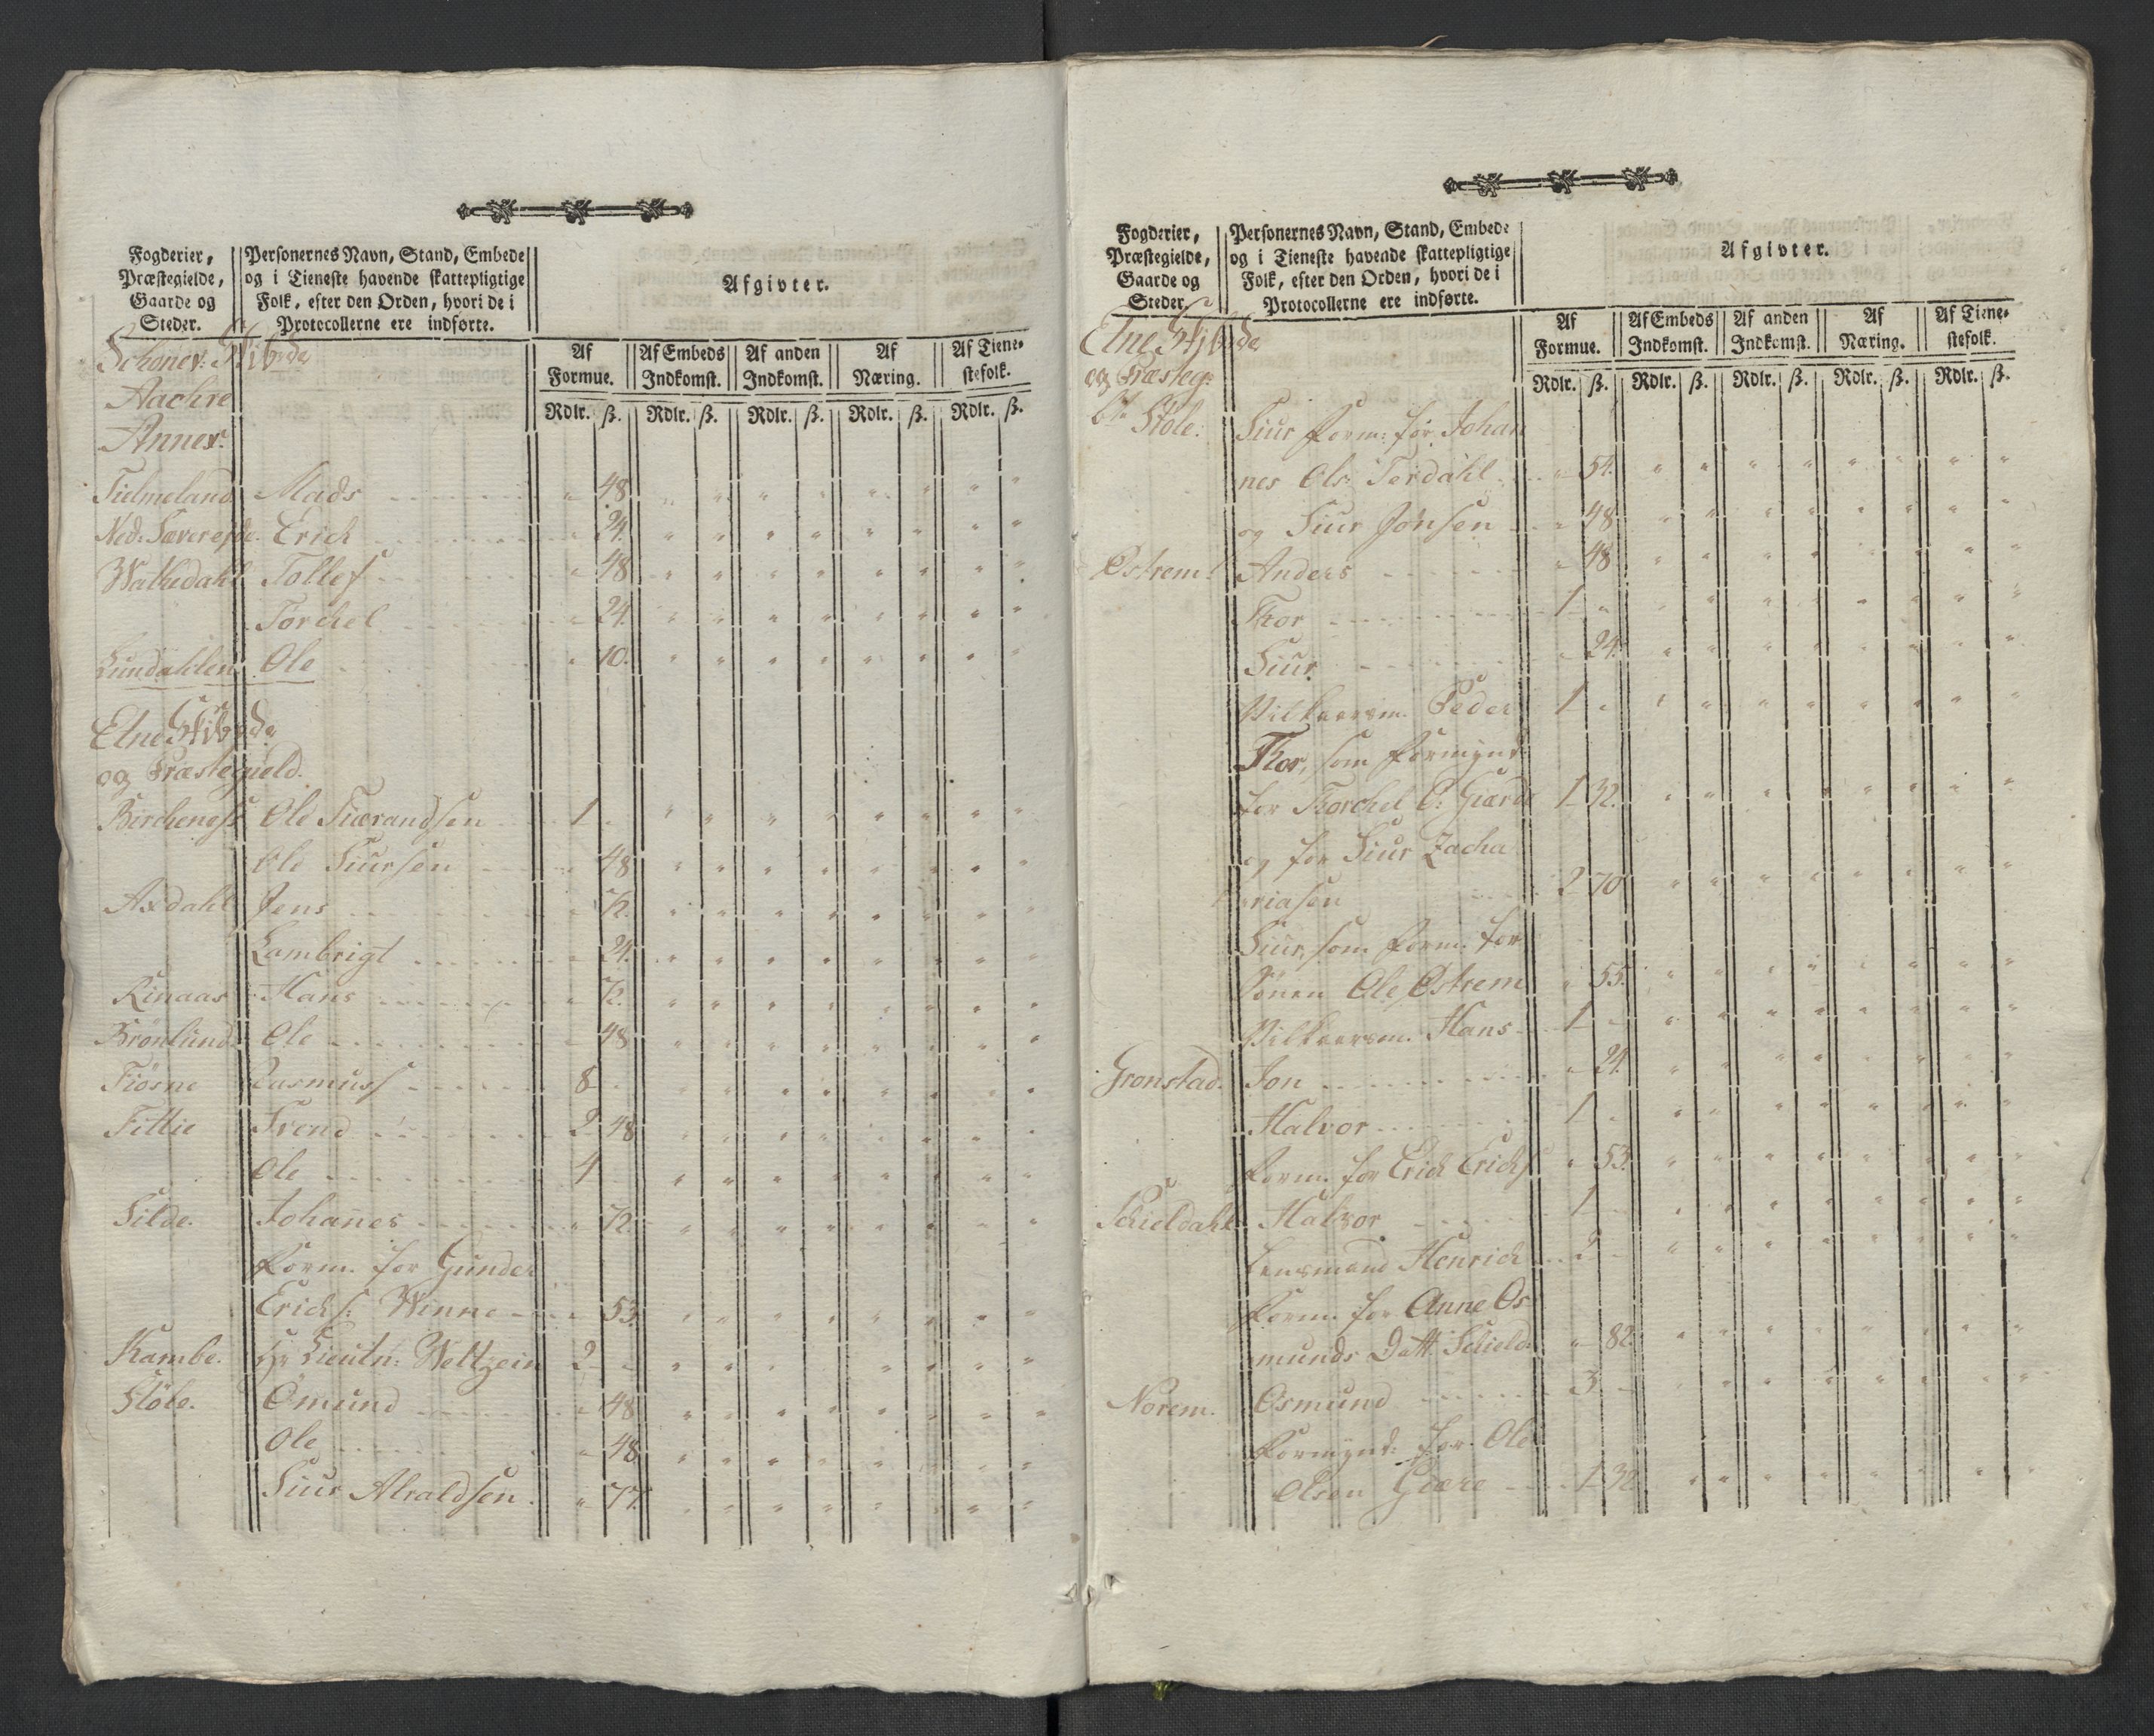 Fogderier, Præstegielde, Gaarde og Steder.
Personernes Navn, Stand, Embede og i Tieneste havende skattepligtige Folk, efter den Orden, hvori de i Protocollerne ere indførte.
Afgivter.
Af Formue. Af Embeds Indkomst. Af anden Indkomst. Af Næring. Af Tienestefolk.
Rdlr. ß. Rdlr. ß. Rdlr. ß. Rdlr. ß. Rdlr. ß.
Schonev: Skibrde
Aachre
Annex.
Tielmeland Mads 〃 48
Ned: Erich 〃 24.
Wathedahl Tollef 〃 48
Torchel 〃 24.
Lundahlen Ole 〃 10.
Elne Skibrde
og Præstegield.
Bircheness Ole Tiærandsen 1 〃
Ole Siursen 〃 48
Axdahl Jens 〃 72.
Lambrigt 〃 24.
Rinaas Hans 〃 72.
Brønlund Ole 〃 48
Fiøsne Rasmuss 8
Fittie Svend 2 48
Ole 4
Silde. Johanes 〃 72
Form. for Gunder
Erichs: Winne 〃 53.
Kambe. Hr Lieutn: Weltzein 2 〃
Støle. Omund 〃 48
Ole 〃 48
Siur Alraldsen 〃 77.
Fogderier, Præstegielde, Gaarde og Steder.
Personernes Navn, Stand, Embede og i Tieneste havende skattepligtige Folk, efter den Orden, hvori de i Protocollerne ere indførte.
Afgivter.
Af Formue. Af Embeds Indkomst. Af anden Indkomst. Af Næring. Af Tienestefolk.
Rdlr. ß. Rdlr. ß. Rdlr. ß. Rdlr. ß. Rdlr. ß.
Elne Skibrde
og Præsteg:
Støle: Siur Form: for Johan
nes Ols: Terdahl 〃 54.
og Siur Jønsen 〃 48
Østrem: Anders 〃 48
Thor 1 〃
Siur 〃 24.
Vilkaarsm. Peder 1 〃
Thor, som Formynd:
for Thorchel O: Giærde 1 32.
og for Siur Zacha
riasen 2 70
Siur, som Form. for
Sønen Ole Østrem 〃 55.
Vilkaarsm. Hans 1 〃
Grønstad. Jon 〃 24.
Halvor 1 〃
Form. for Erich Erichs: 〃 53.
Schieldahl Halvor 1 〃
Lensmand Henrich 2 〃
Form. for Anne Os
munds Datt. Schield: 〃 82.
Norem. Osmund 3 〃
Formynd: for Ole
Olsen Giære 1 32